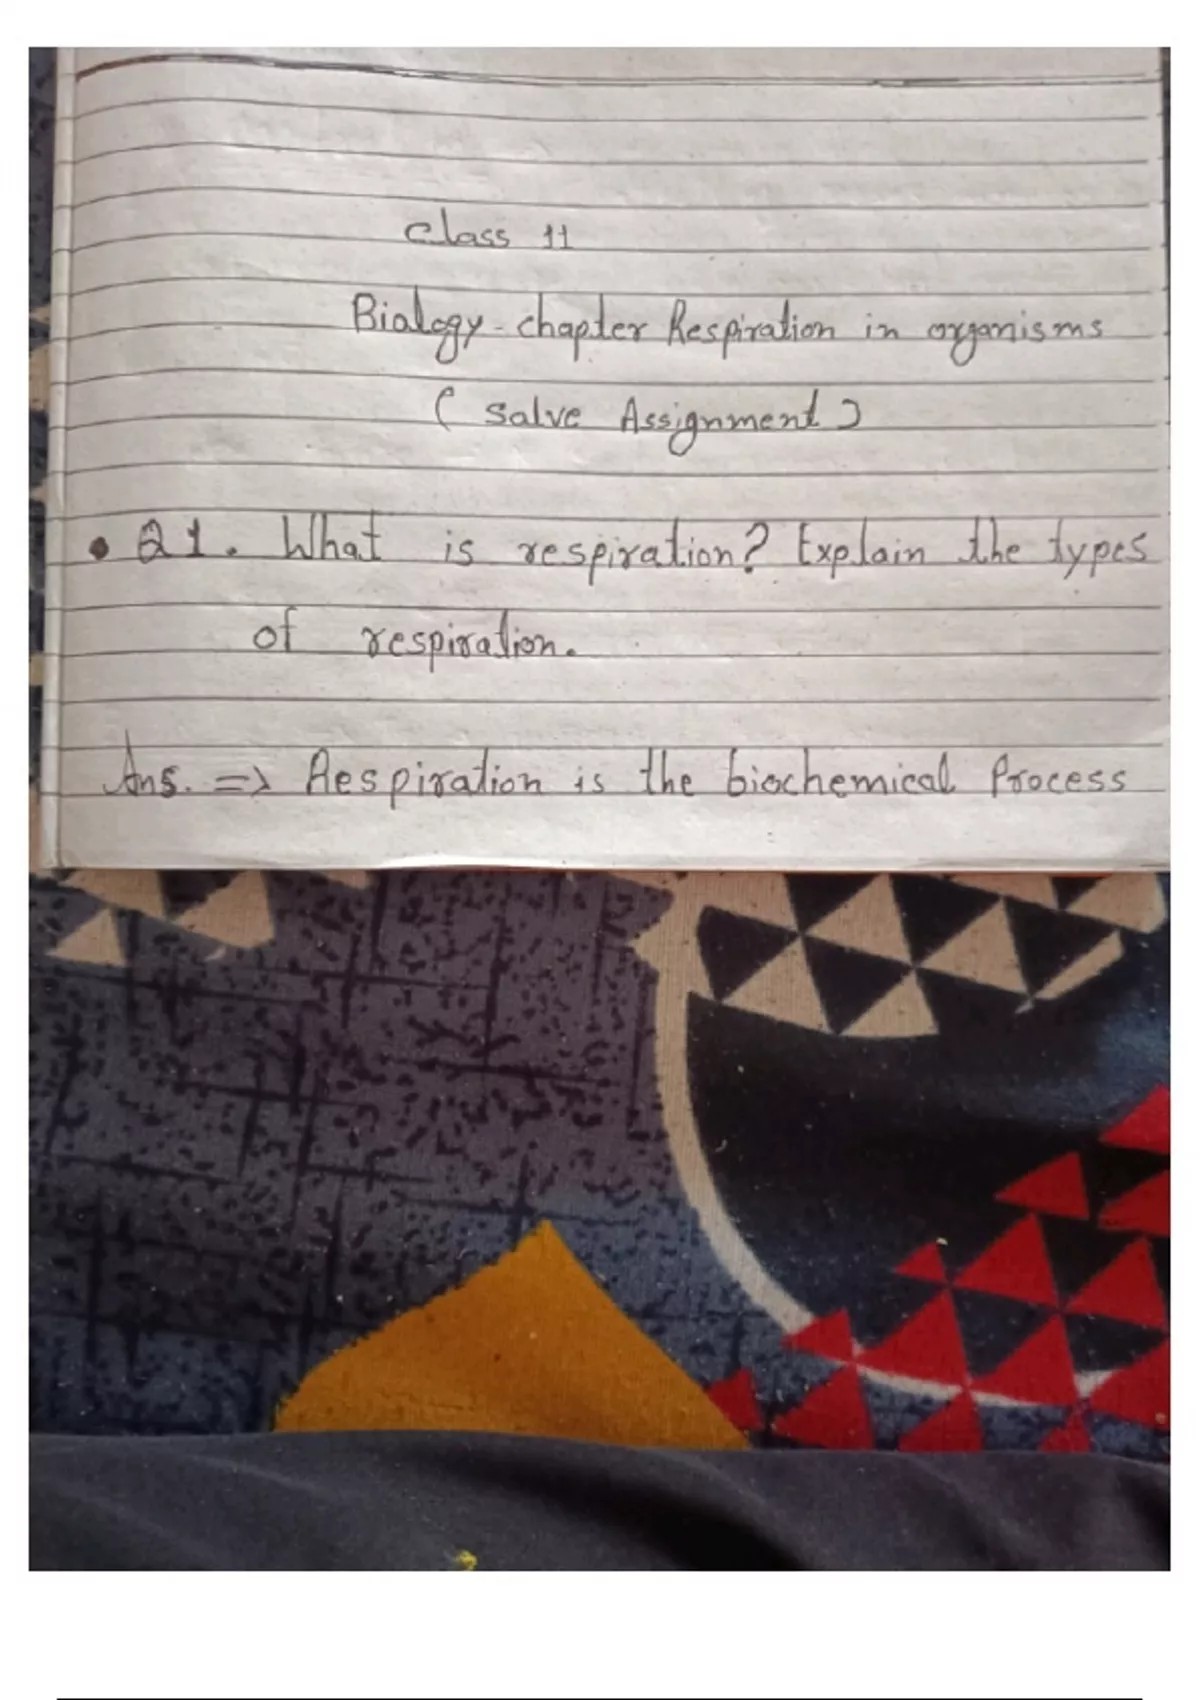 Class 11
Biology - chapter Respiration in organisms
( Salve Assignment )
• Q1. What is respiration? Explain the types
of respiration.
Ans. => Respiration is the biochemical Process